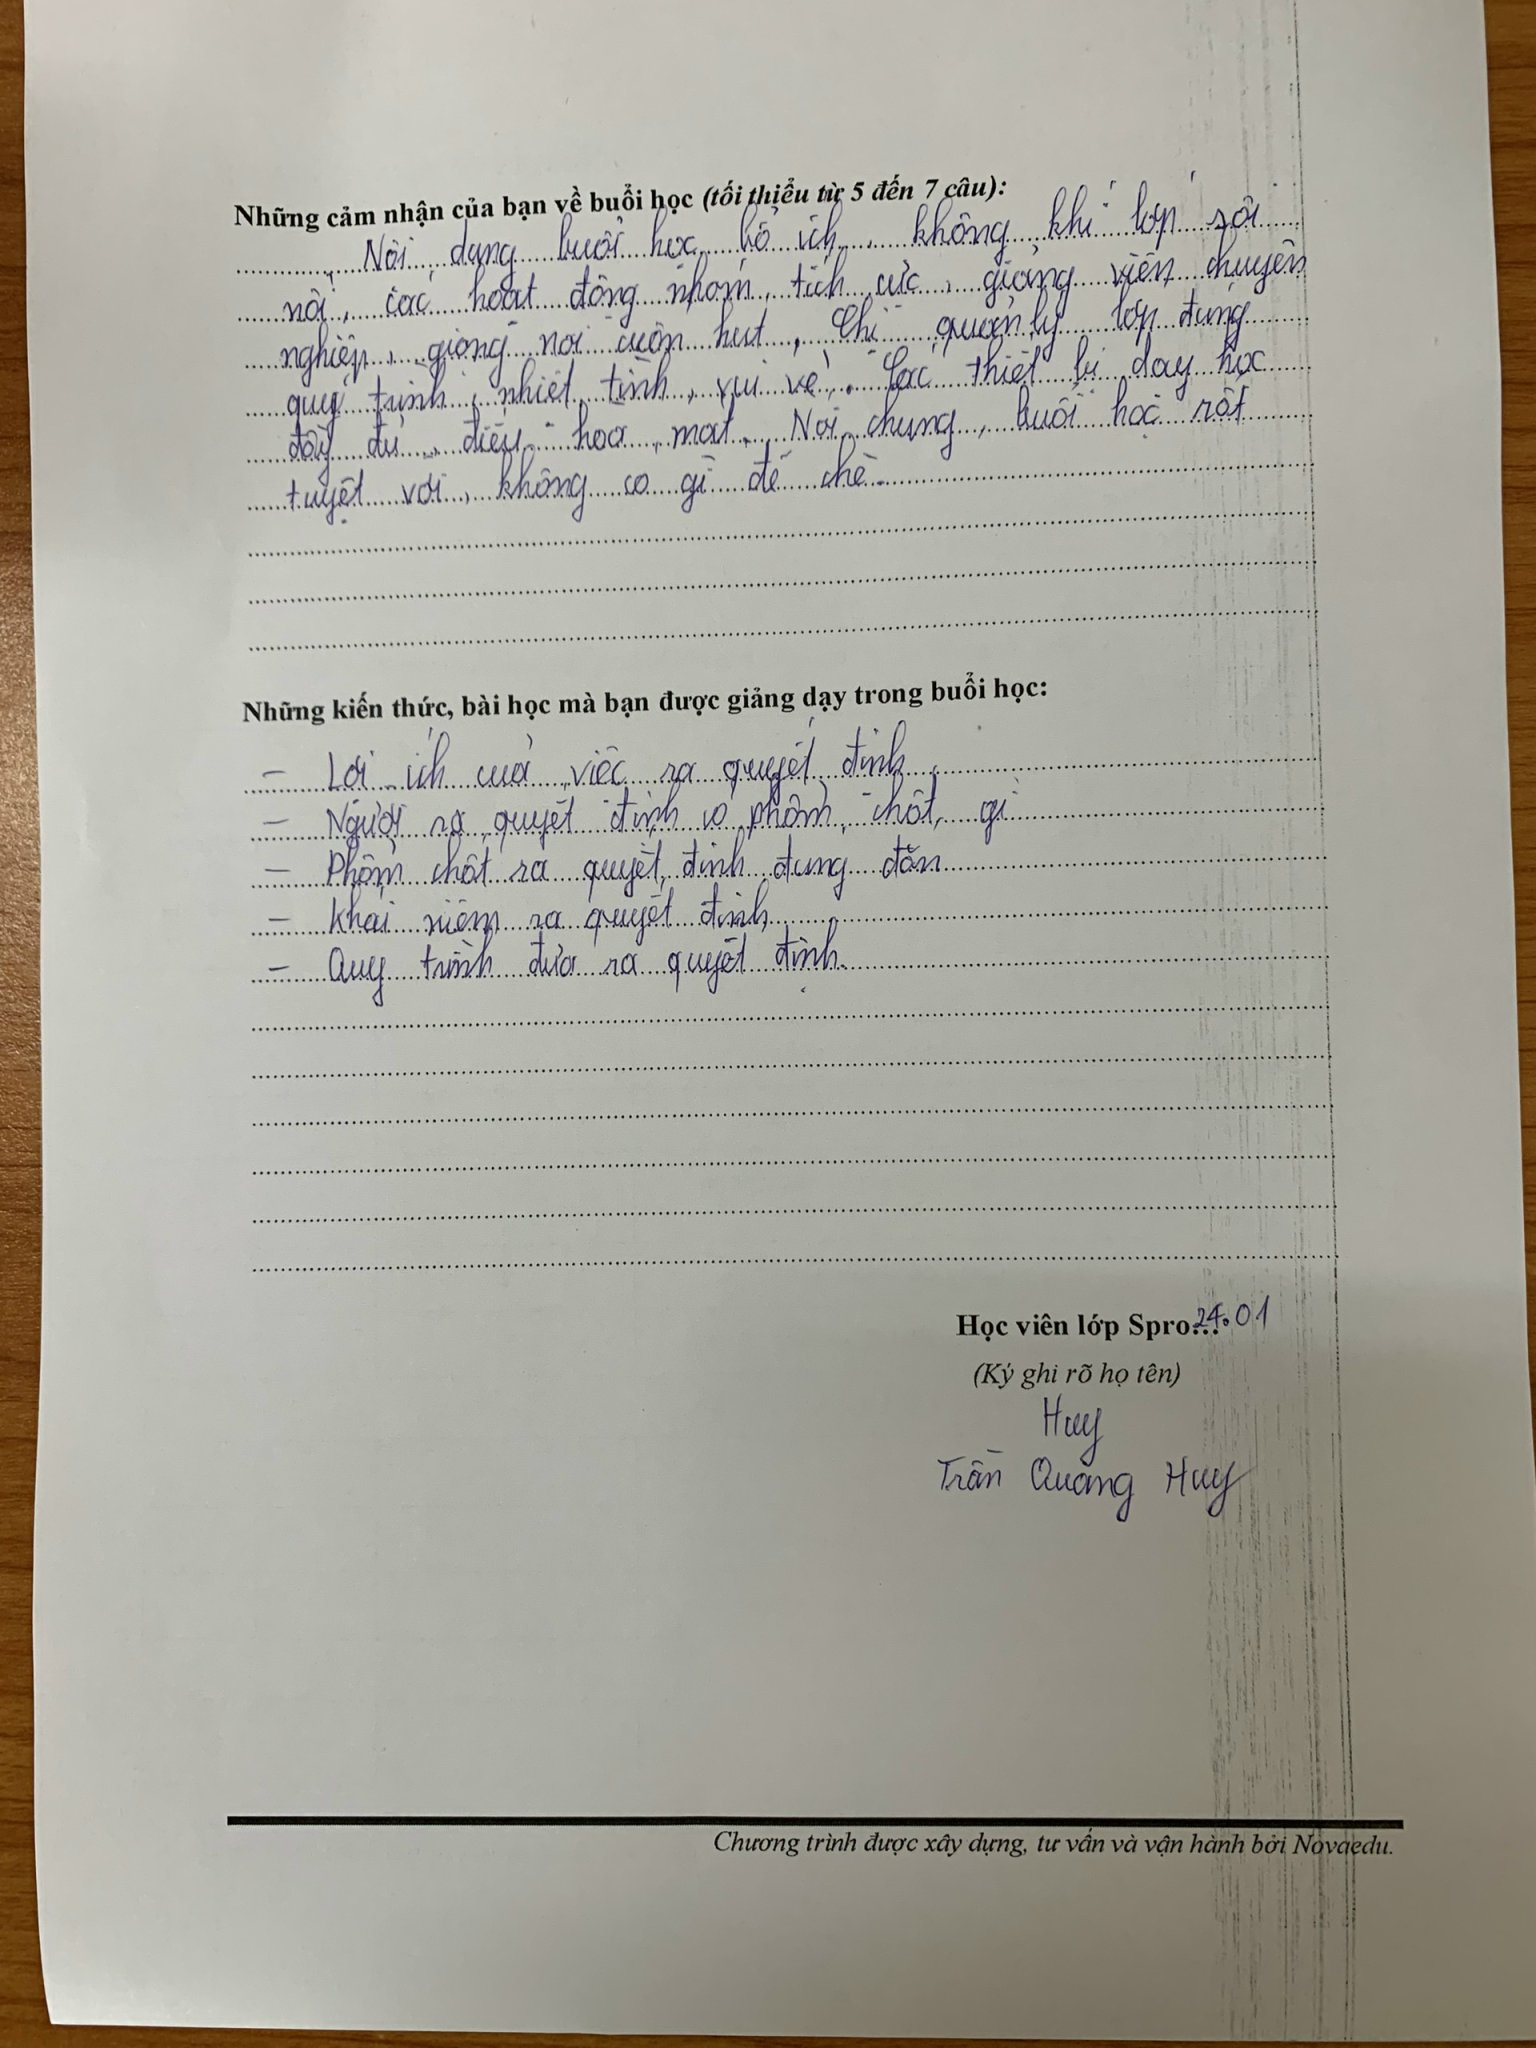 Những cảm nhận của bạn về buổi học (tối thiểu từ 5 đến 7 câu):
Nội dung buổi học bổ ích, không khí lớp sôi
nổi, các hoạt động nhóm tích cực, giảng viên chuyên
nghiệp, giọng nói cuốn hút, Chị quản lý lớp đúng
quy trình, nhiệt tình, vui vẻ. Các thiết bị dạy học
đầy đủ, điều hòa mát. Nói chung, buổi học rất
tuyệt vời, không có gì để chê.
Những kiến thức, bài học mà bạn được giảng dạy trong buổi học:
- Lợi ích của việc ra quyết định
- Người ra quyết định có phẩm chất gì
- Phẩm chất ra quyết định đúng đắn
- Khái niệm ra quyết định
- Quy trình đưa ra quyết định.
Học viên lớp Spro...24.01
(Ký ghi rõ họ tên)
Huy
Trần Quang Huy
Chương trình được xây dựng, tư vấn và vận hành bởi Novaedu.